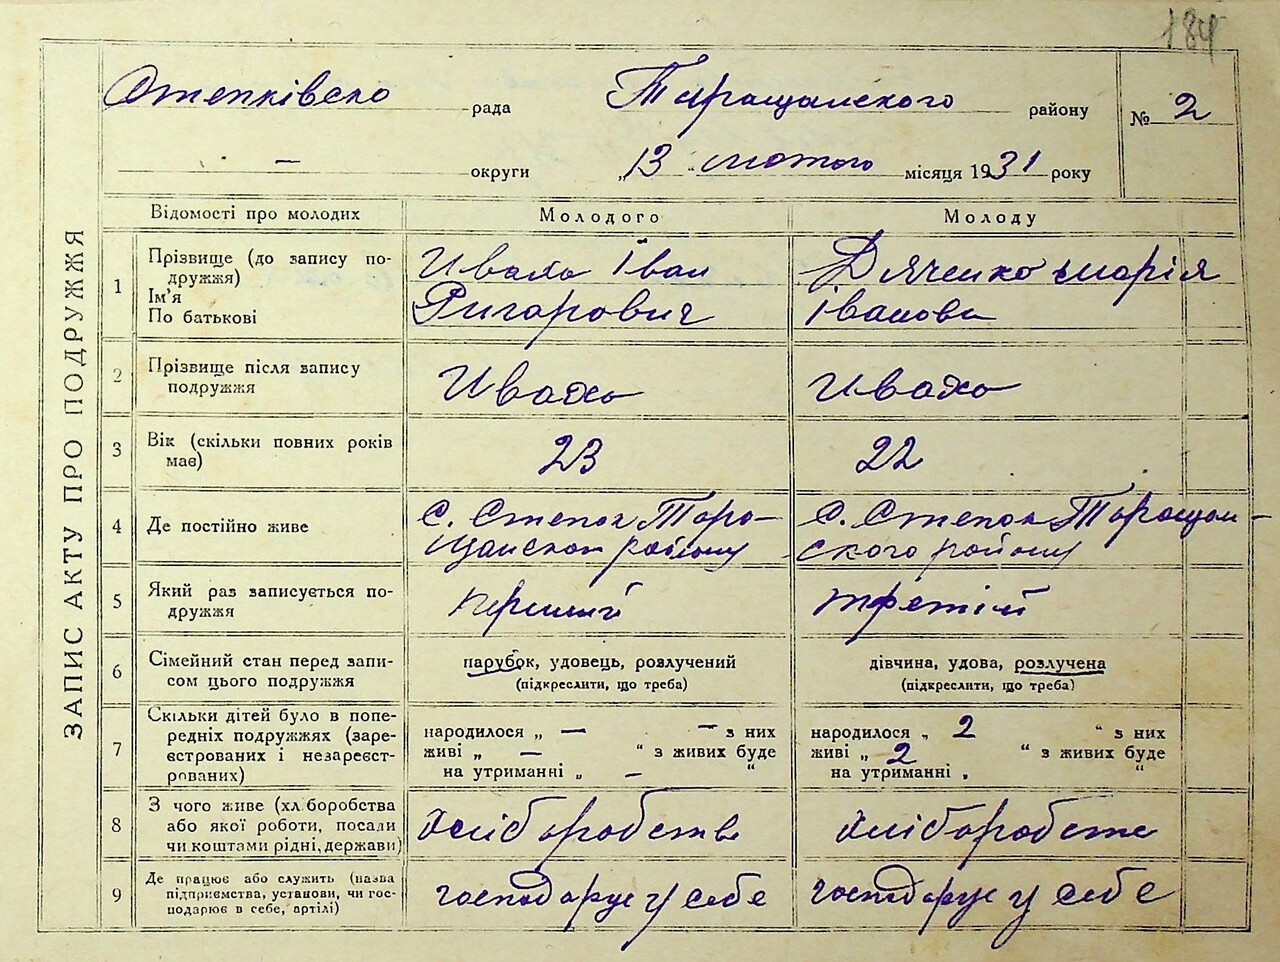 184
Степківсько рада Таращанского району № 2
— округи „13 “ лютого місяця 1931 року
ЗАПИС АКТУ ПРО ПОДРУЖЖЯ
Відомості про молодих Молодого Молоду
1 Прізвище (до запису по-
дружжя)
Ім'я
По батькові
Ивахо Іван
Григорович
Дяченко Марія
Іванова
2 Прізвище після запису
подружжя
Ивахо Ивахо
3 Вік (скільки повних років
має)
23 22
4 Де постійно живе
с. Степок Тара-
щанском району
с. Степок Таращан-
ского району
5 Який раз записується по-
дружжя
перший третій
6 Сімейний стан перед запи-
сом цього подружжя
парубок, удовець, розлучений
(підкреслити, що треба)
дівчина, удова, розлучена
(підкреслити, що треба)
7 Скільки дітей було в попе-
редніх подружжях (заре-
єстрованих і незареєст-
рованих)
народилося „ — — з них
живі „ — “ з живих буде
на утриманні „ — “
народилося „ 2 “ з них
живі „ 2 “ з живих буде
на утриманні „ “
8 З чого живе (хл боробства
або якої роботи, посади
чи коштами рідні, держави)
хліборобств хліборобств
9 Де працює або служить (назва
підприємства, установи, чи гос-
подарює в себе, артілі)
господарує у себе господарує у себе